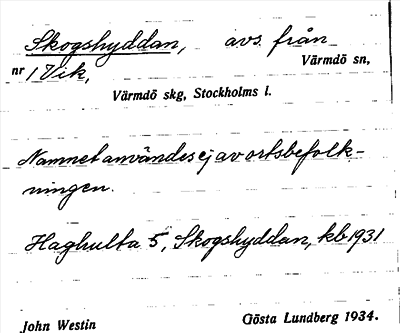 Skogshyddan, avs. från
nr 1 Vik, Värmdö sn,
Värmdö skg, Stockholms l.
Namnet användes ej av ortsbefolk-
ningen.
Haghulta 5, Skogshyddan, kb 1931
John Westin Gösta Lundberg 1934.